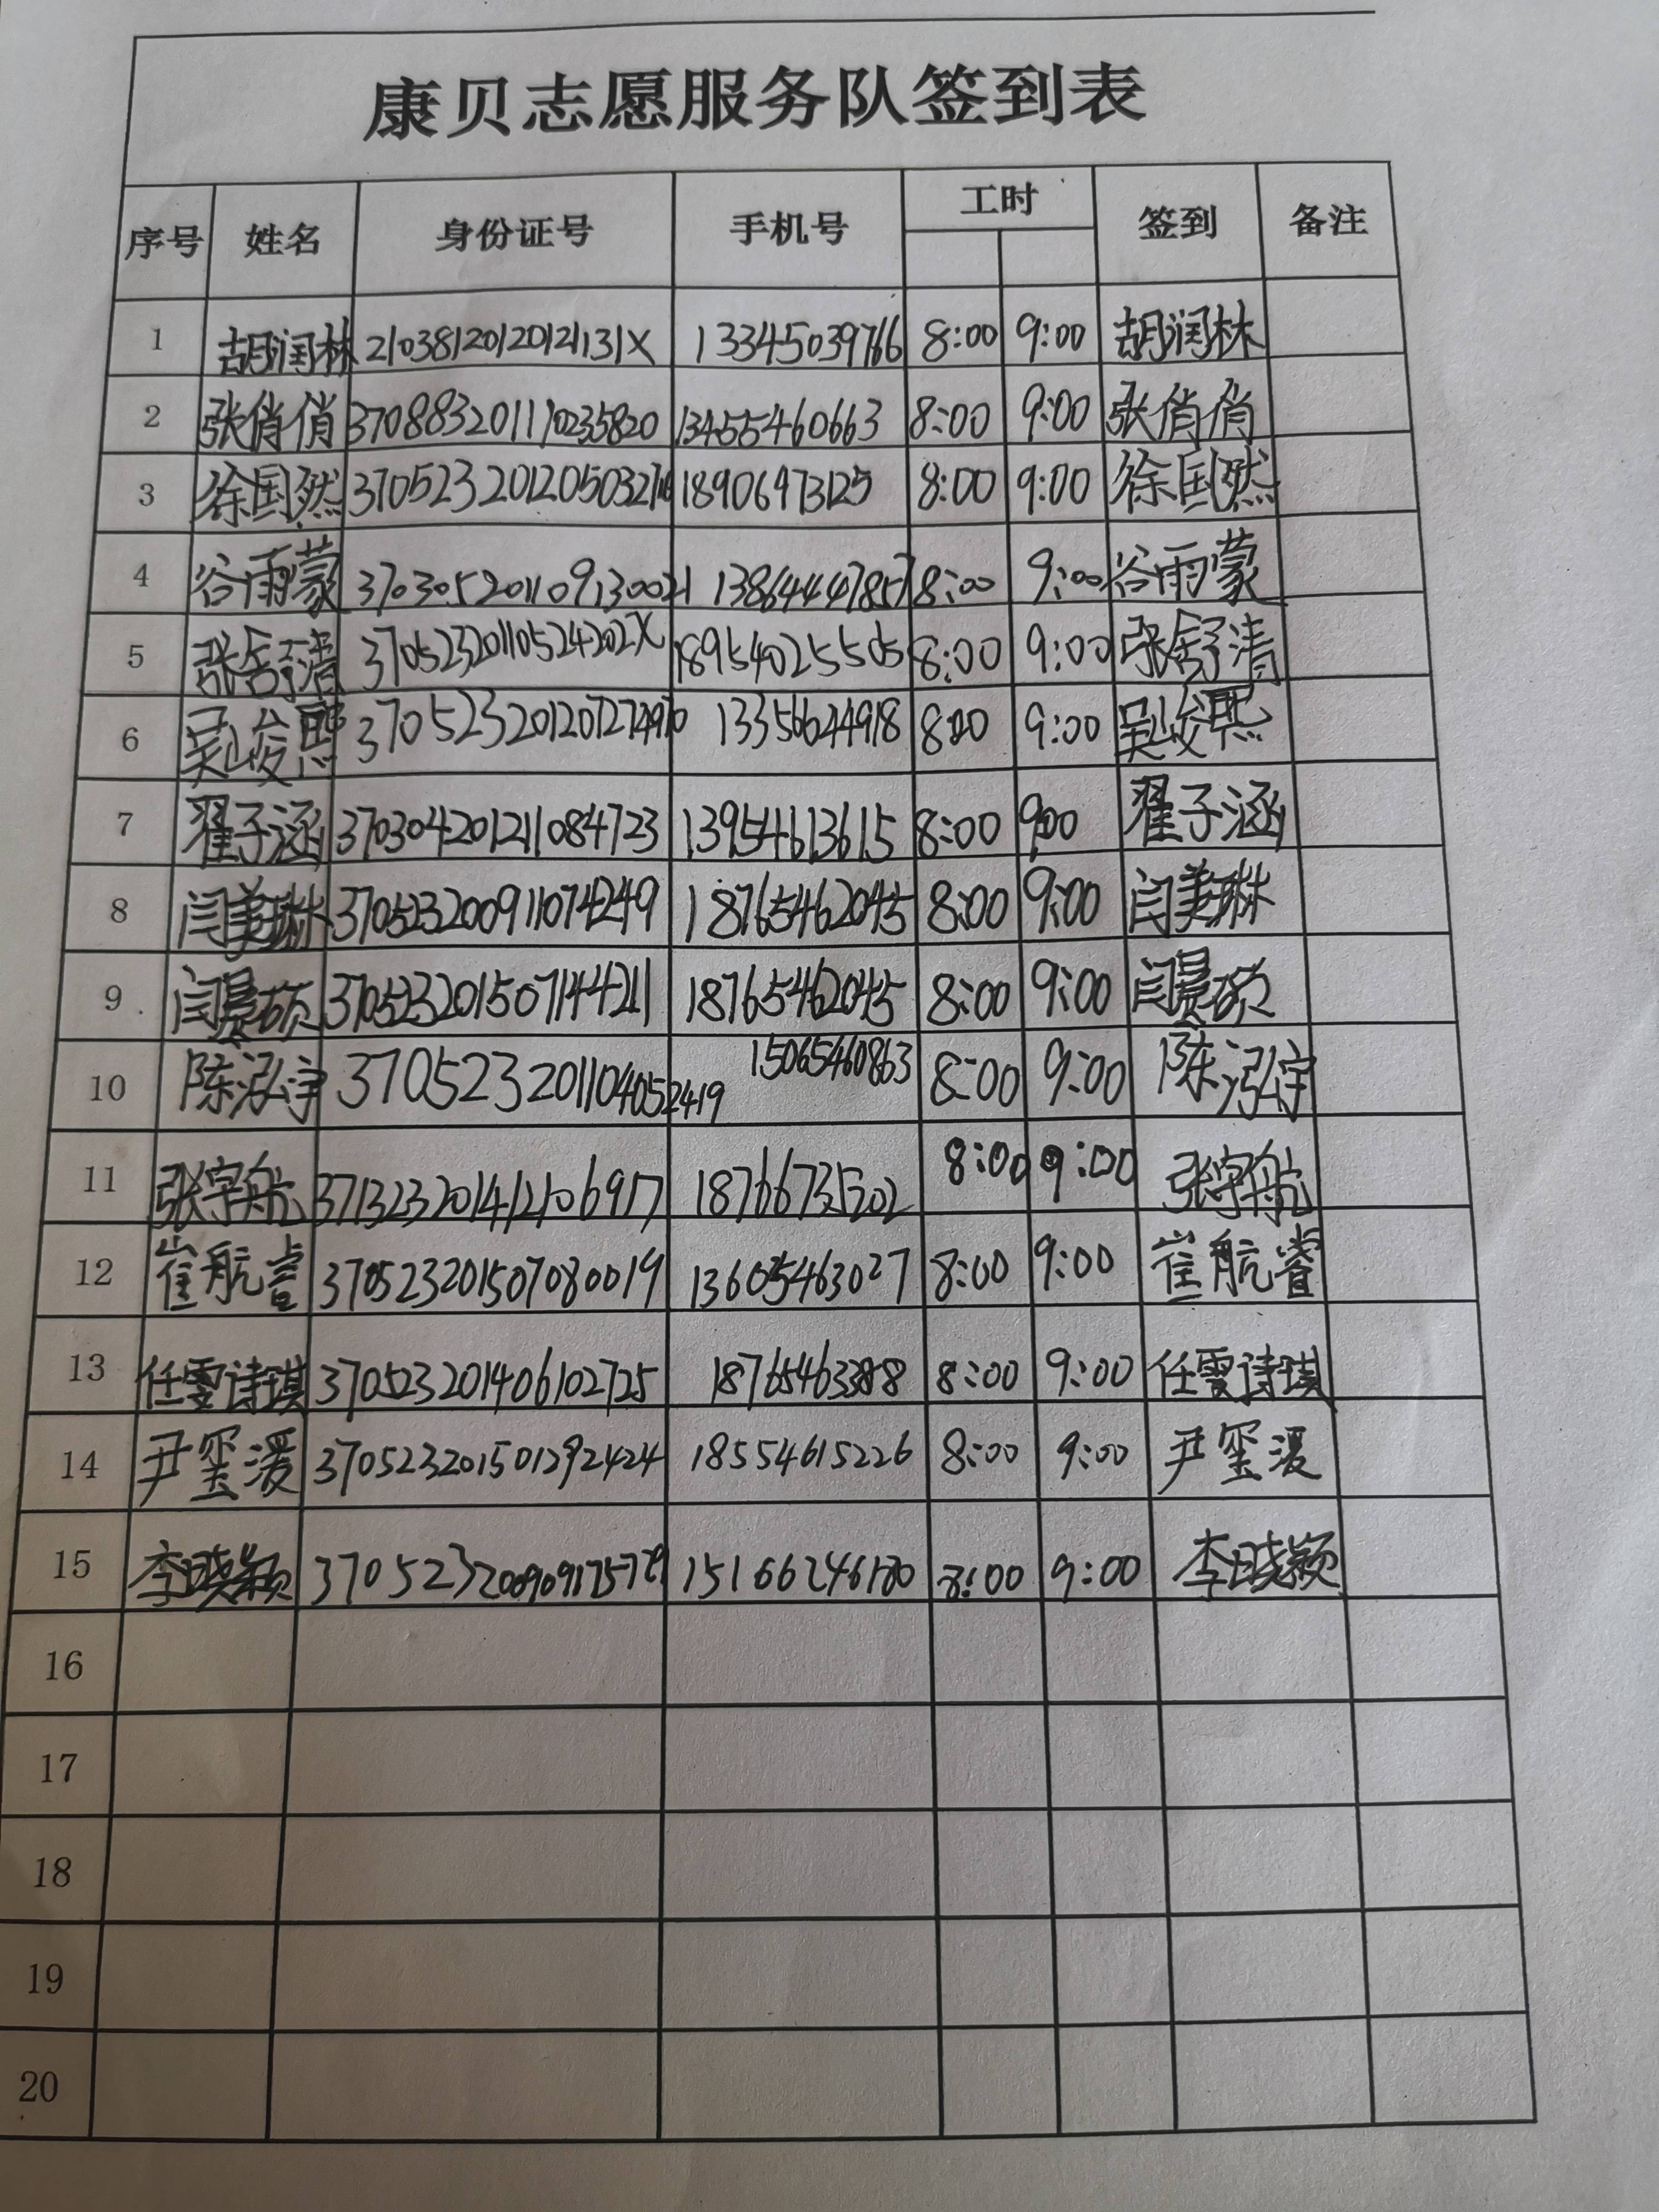 康贝志愿服务队签到表
序号 姓名 身份证号 手机号 工时 签到 备注
1 胡润林 21038120120121131X 13345039766 8:00 9:00 胡润林
2 张俏俏 370883201110235820 13455460663 8:00 9:00 张俏俏
3 徐国然 18906473125 8:00 9:00 徐国然
4 谷雨蒙 370305201109130021 13864447857 8:00 9:00 谷雨蒙
5 张舒清 37052320110524202X 18954025505 8:00 9:00 张舒清
6 吴峻熙 13356644918 8:00 9:00 吴峻熙
7 翟子涵 370304201211084723 13954613615 8:00 9:00 翟子涵
8 闫美琳 370523200911074249 18765462045 8:00 9:00 闫美琳
9 闫景硕 370523201507144211 18765462045 8:00 9:00 闫景硕
10 陈泓宇 370523201104052419 15065460863 8:00 9:00 陈泓宇
11 张宇航 371323201412106917 18766735202 8:00 9:00 张宇航
12 崔航睿 370523201507080019 13605463027 8:00 9:00 崔航睿
13 任雯诗琪 370523201406102725 8:00 9:00 任雯诗琪
14 尹玺湲 370523201501292424 18554615226 8:00 9:00 尹玺湲
15 李晓颖 8:00 9:00 李晓颖
16
17
18
19
20